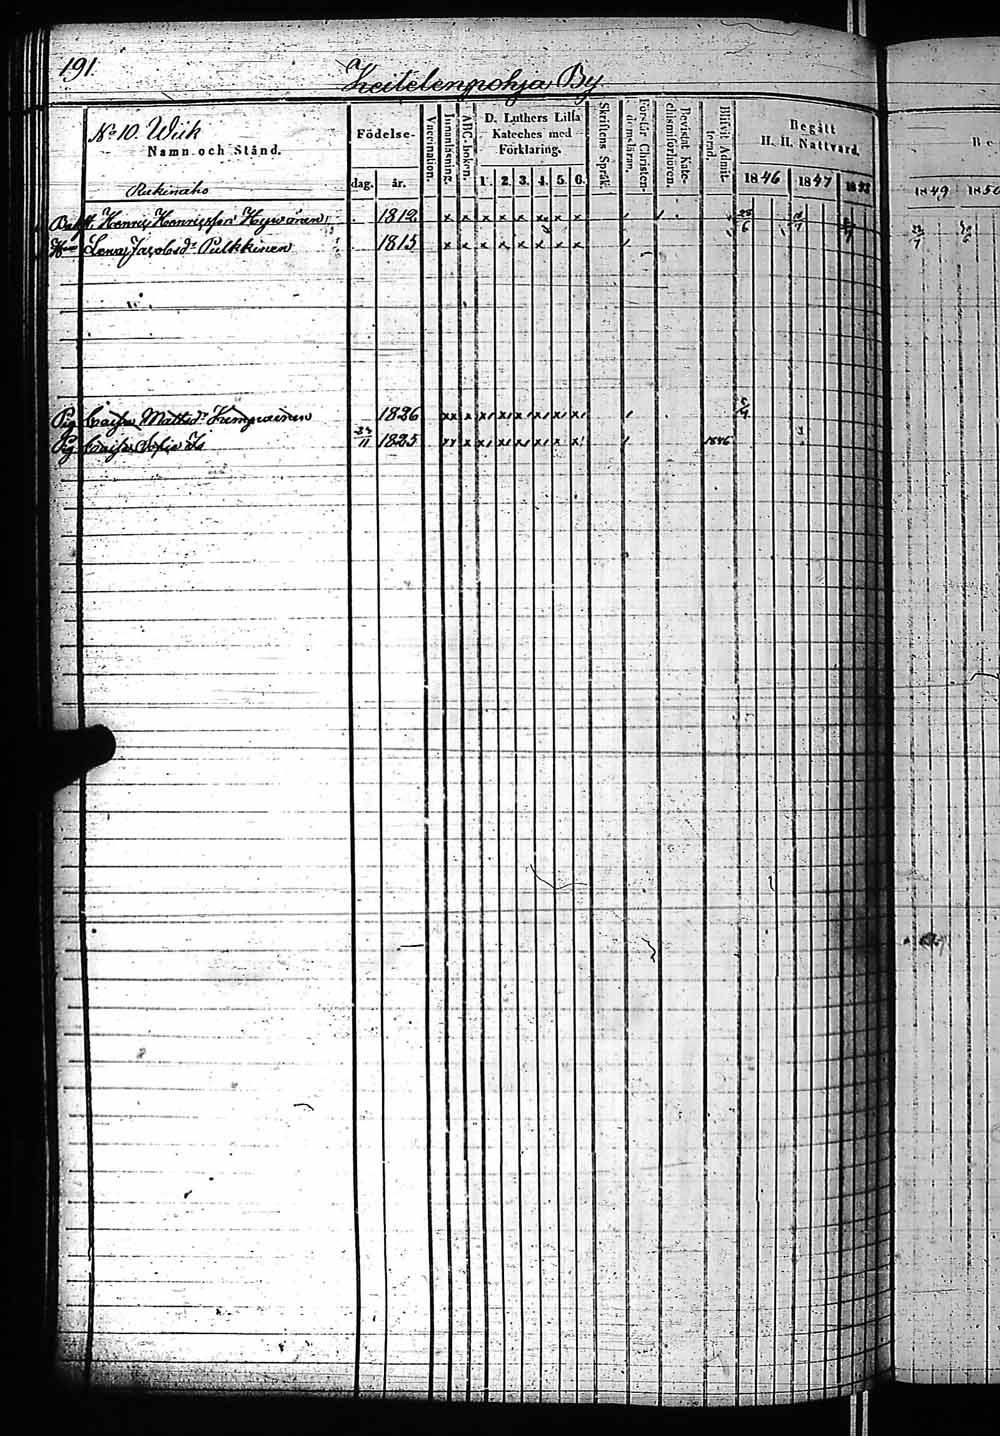 191.
Keitelenpohja By
No 10. Wiik
Namn och Stånd.
Födelse-
dag. år.
Vaccination.
Innanläsning.
ABC-boken.
D. Luthers Lilla
Kateches med
Förklaring.
1. 2. 3. 4. 5. 6.
Skriftens Språk.
Förstår Christen-
domsläran.
Bevistat Kate-
chismiförhören.
Blifvit Admit-
terad.
Begått
H. H. Nattvard.
1846 1847 1848
1849 1850
Be
Rukinaho
Henric Henricsson Hyvären 1812 x x x x x x x x
Hu Lena Jacobsdr Pulkkinen 1815 x x x x x x x x
Pig Caisa Mattsdr Kumpuinen 1826
Pig Caisa Sofia Is 24/11 1825 1846